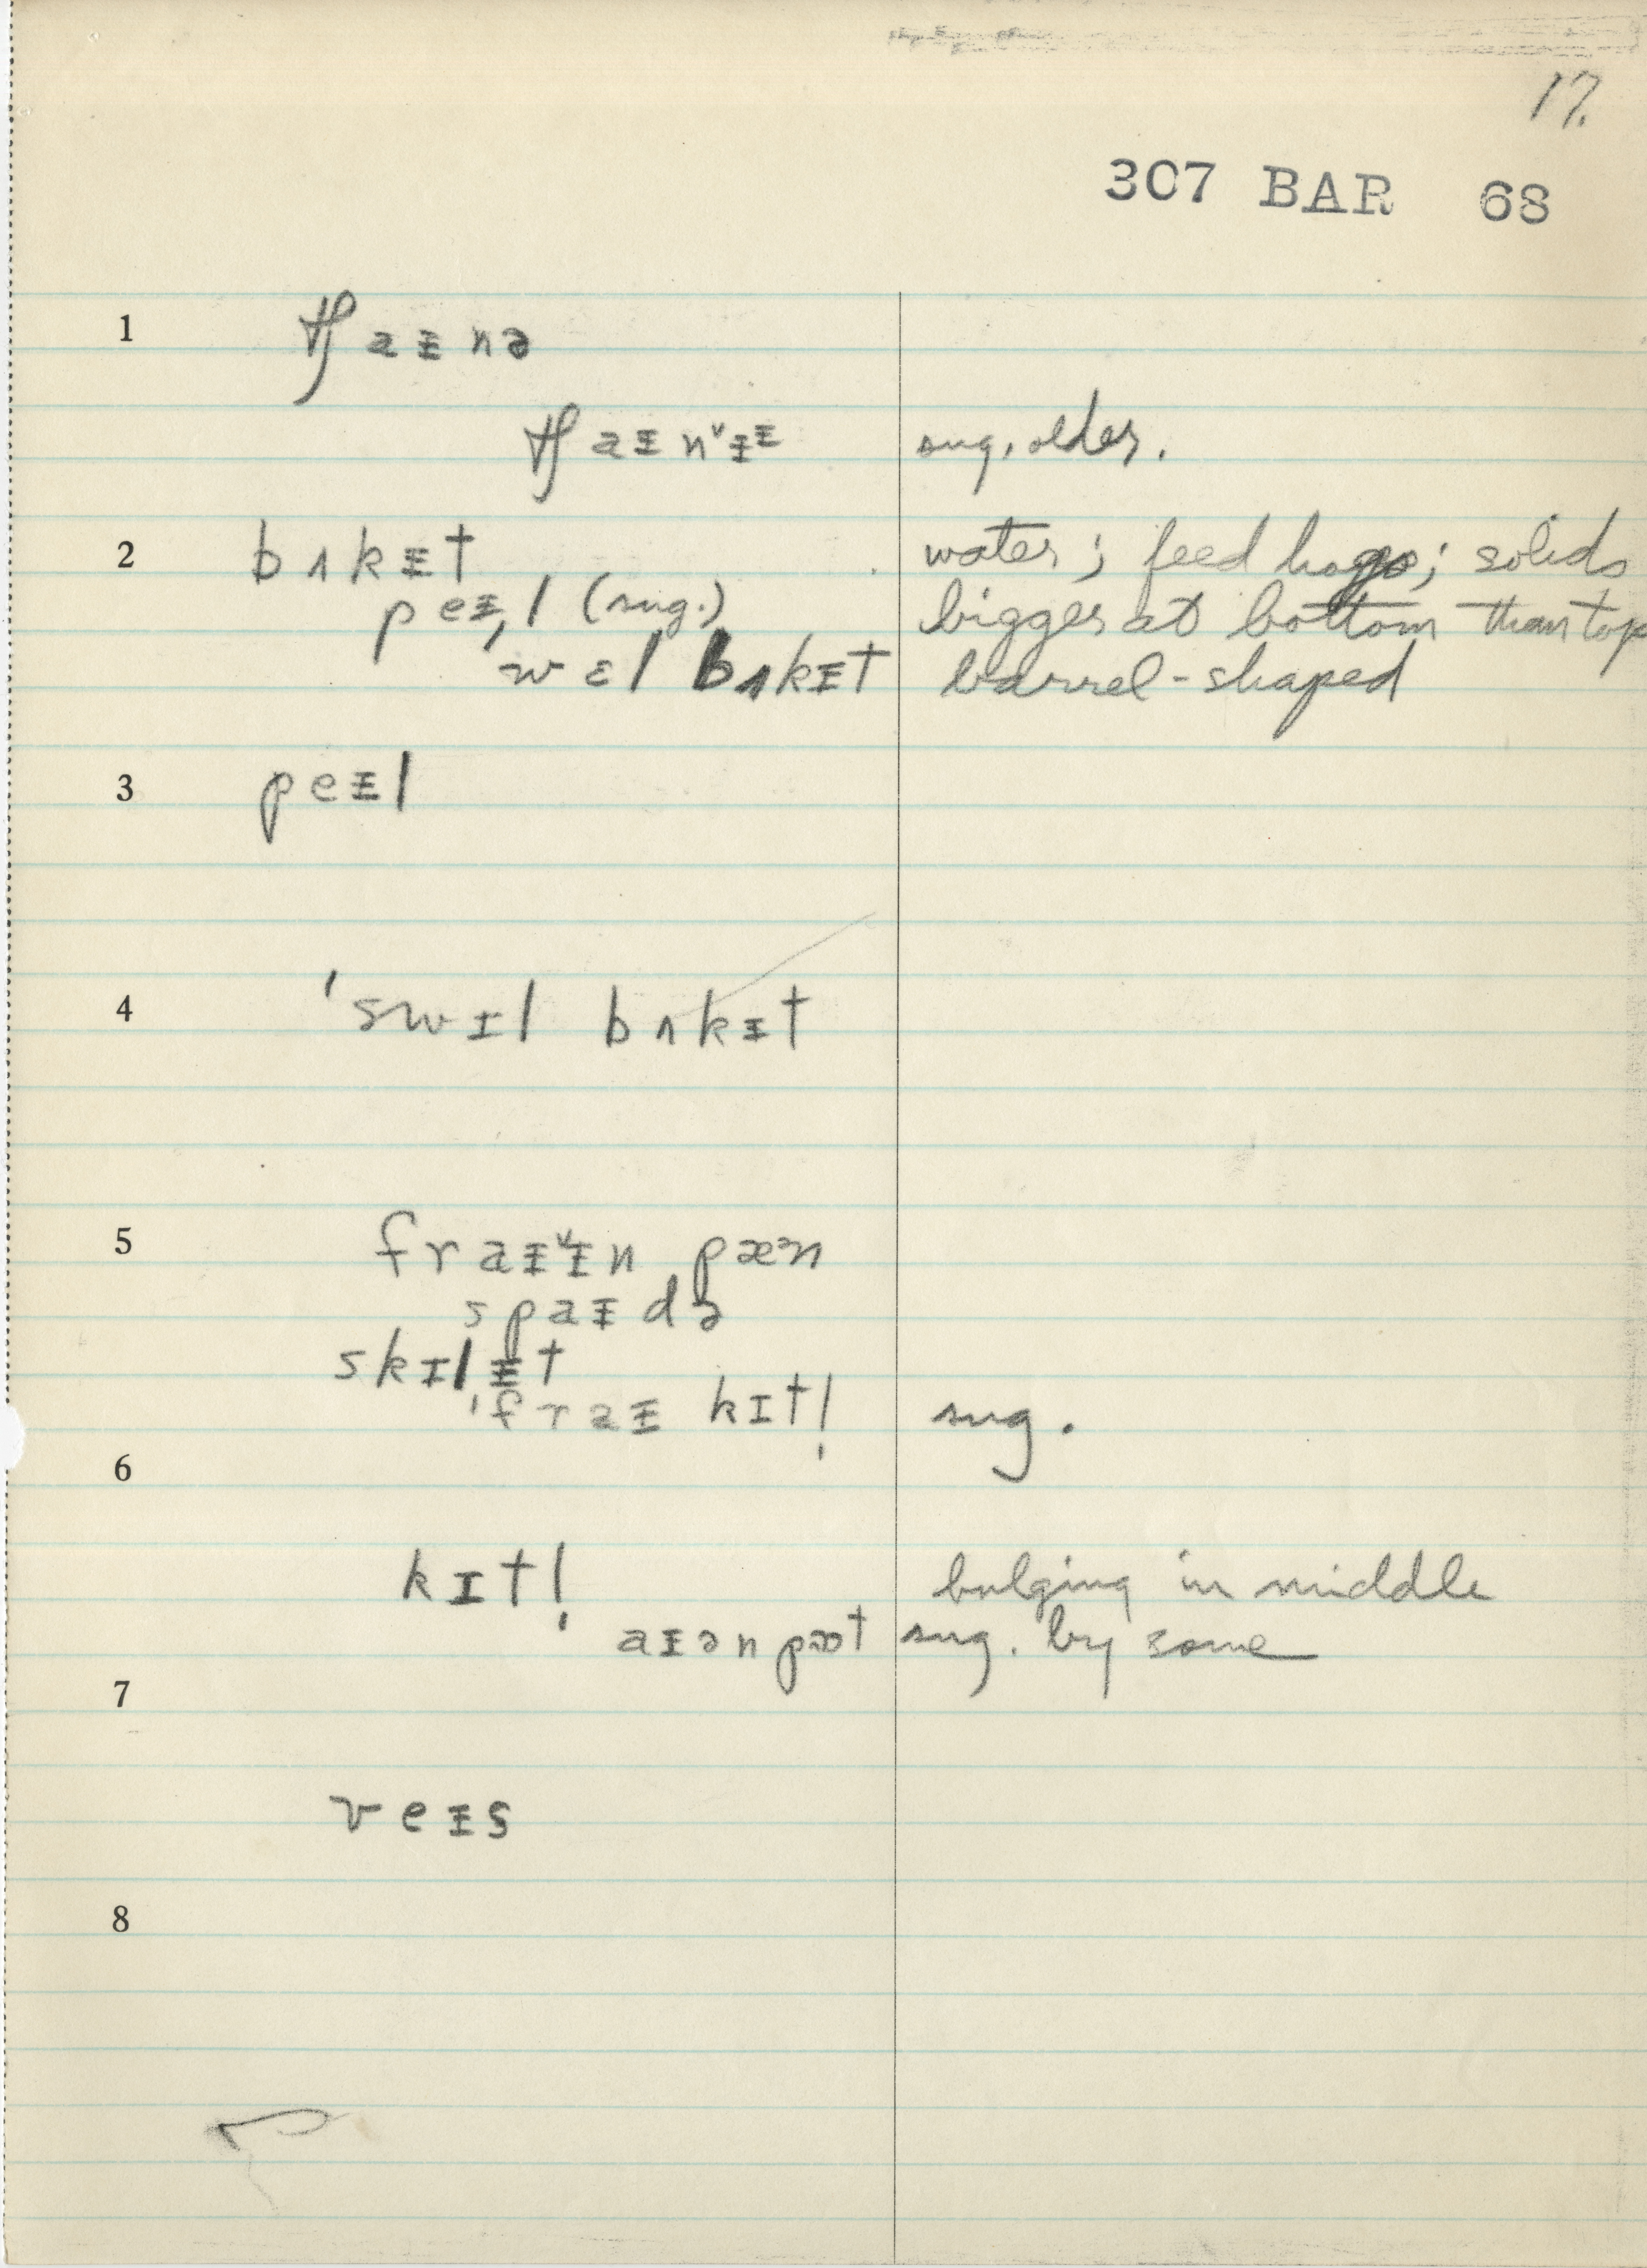 17.
307 BAR 68
1 tʃaᵻnə
tʃaᵻnˇᵻᵻ sug. older.
2 bʌkᵻt water; feed hogs; solids
peᵻ̩l (sug.) bigger at bottom than top
ˈwɛl bʌkᵻt barrel-shaped
3 peᵻl
4 ˈswɪl bʌkɪt
5 fraᵻˇᵻn pæn
spaᵻdə
skɪlᵻt
ˈfraᵻ kɪtl̩ sug.
6
kɪtl̩ bulging in middle
aɪən pɒt sug. by some
7
veᵻs
8